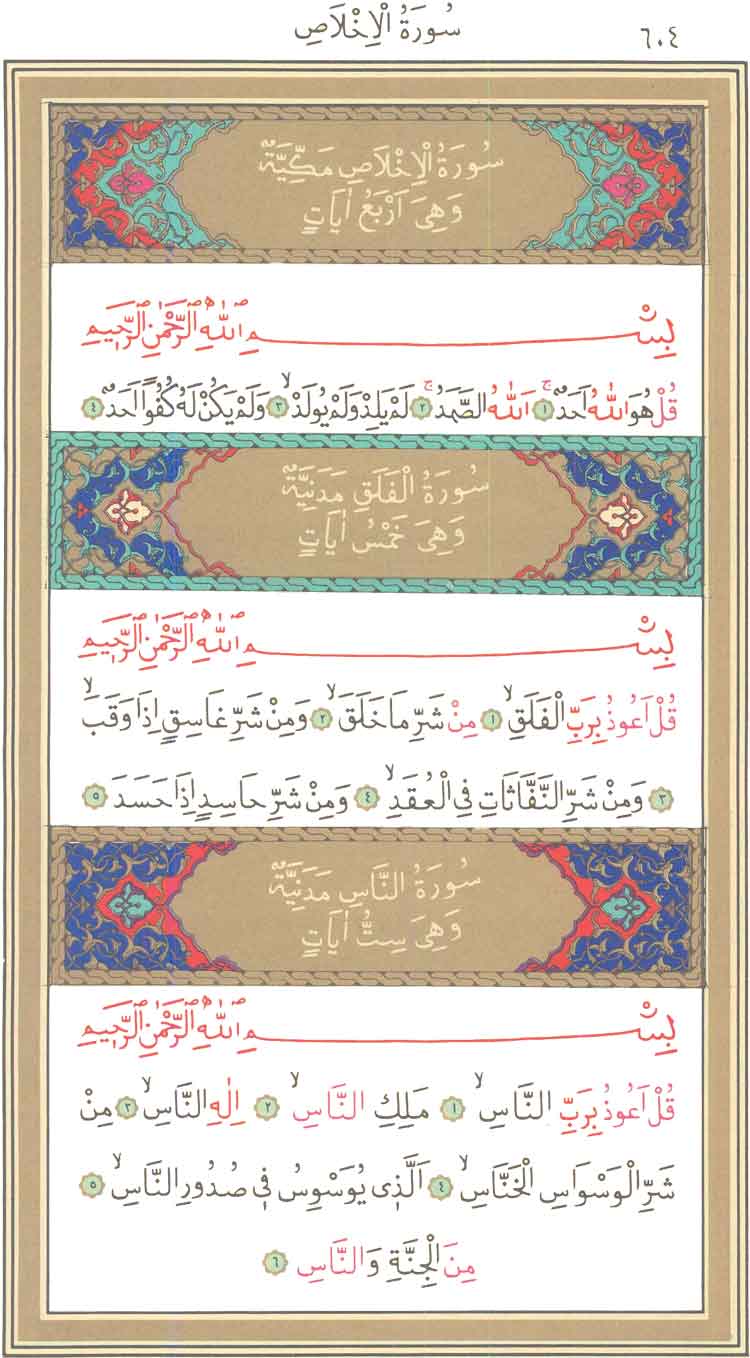 ٦٠٤
سُورَةُ الْاِخْلَاصِ
سُورَةُ الْاِخْلَاصِ مَكِّيَّةٌ
وَهِىَ اَرْبَعُ اٰيَاتٍ
بِسْمِ اللّٰهِ الرَّحْمٰنِ الرَّح۪يمِ
قُلْ هُوَ اللّٰهُ اَحَدٌۚ ١ اَللّٰهُ الصَّمَدُۚ ٢ لَمْ يَلِدْ وَلَمْ يُولَدْۙ ٣ وَلَمْ يَكُنْ لَهُ كُفُوًا اَحَدٌ ٤
سُورَةُ الْفَلَقِ مَدَنِيَّةٌ
وَهِىَ خَمْسُ اٰيَاتٍ
بِسْمِ اللّٰهِ الرَّحْمٰنِ الرَّح۪يمِ
قُلْ اَعُوذُ بِرَبِّ الْفَلَقِۙ ١ مِنْ شَرِّ مَا خَلَقَۙ ٢ وَمِنْ شَرِّ غَاسِقٍ اِذَا وَقَبَۙ
٣ وَمِنْ شَرِّ النَّفَّاثَاتِ فِى الْعُقَدِۙ ٤ وَمِنْ شَرِّ حَاسِدٍ اِذَا حَسَدَ ٥
سُورَةُ النَّاسِ مَدَنِيَّةٌ
وَهِىَ سِتُّ اٰيَاتٍ
بِسْمِ اللّٰهِ الرَّحْمٰنِ الرَّح۪يمِ
قُلْ اَعُوذُ بِرَبِّ النَّاسِۙ ١ مَلِكِ النَّاسِۙ ٢ اِلٰهِ النَّاسِۙ ٣ مِنْ
شَرِّ الْوَسْوَاسِ الْخَنَّاسِۙ ٤ اَلَّذ۪ى يُوَسْوِسُ ف۪ى صُدُورِ النَّاسِۙ ٥
مِنَ الْجِنَّةِ وَالنَّاسِ ٦